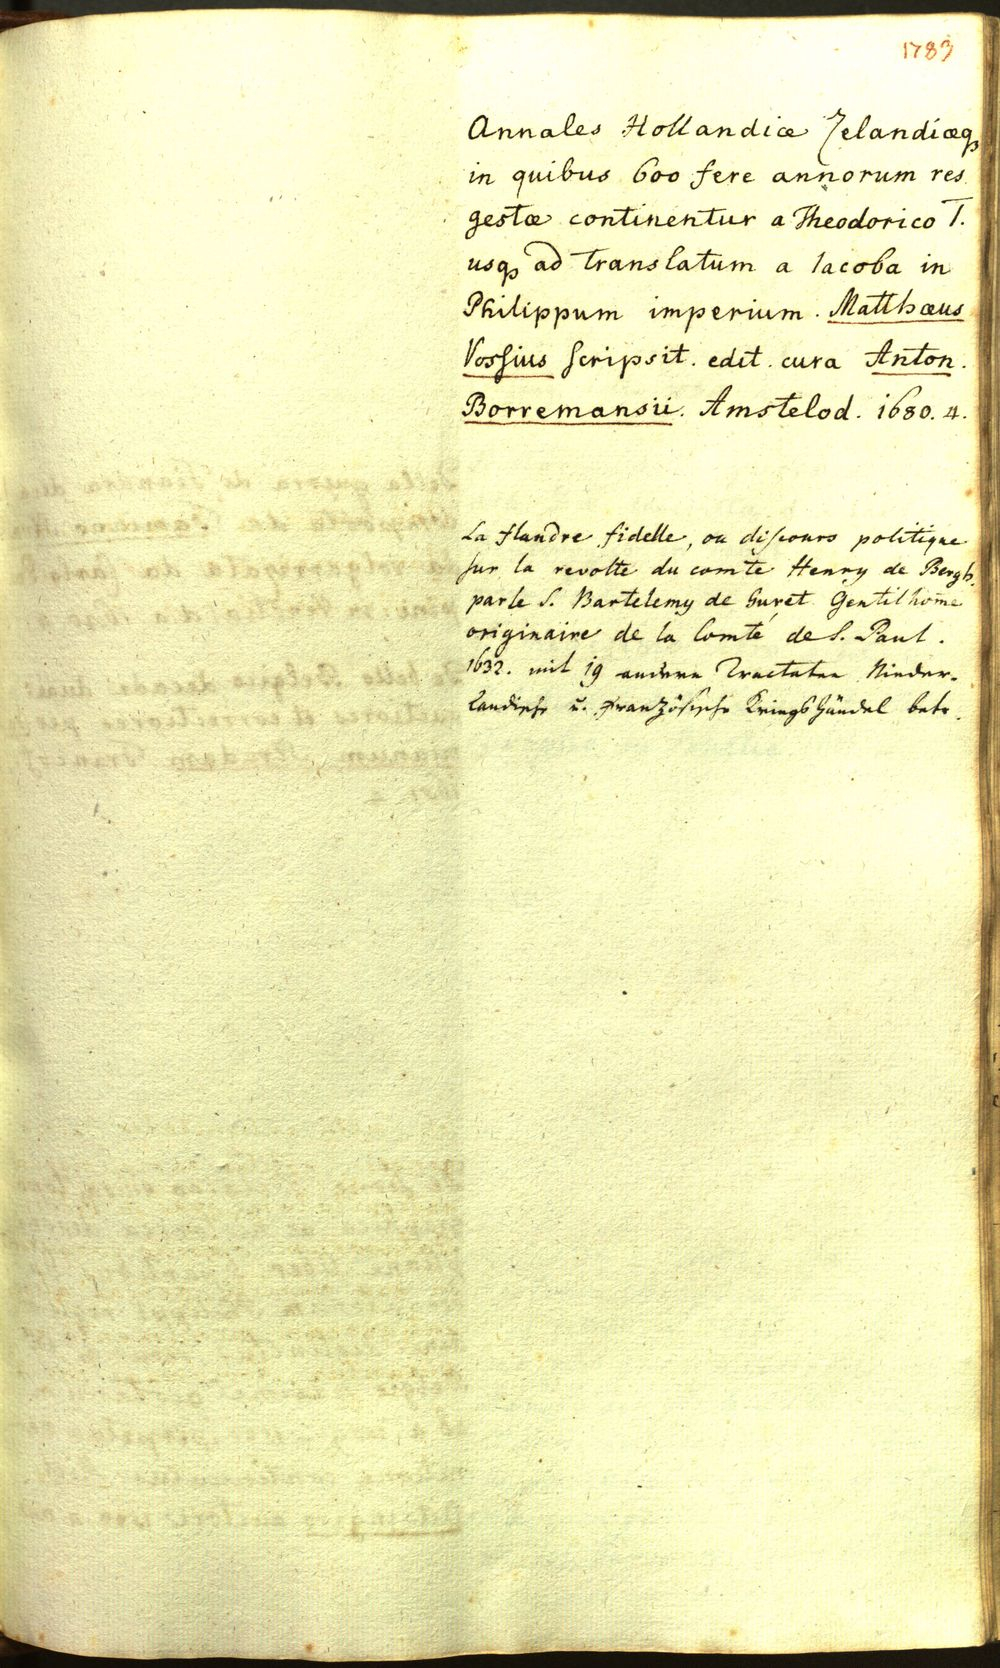 1783
Annales Hollandiæ Zelandiæq
in quibus 600 fere annorum res
gestæ continentur a Theodorico I.
usq ad translatum a Iacoba in
Philippum imperium. Matthæus
Vossius scripsit. edit. cura Anton.
Borremansii. Amstelod. 1680. 4.
La flandre fidelle, ou discours politique
sur la revolte du comte Henry de Bergh.
par le S. Bartelemy de Guret Gentilhom̄e
originaire de la Comté de S. Paul.
1632. mit 19 andern Tractaten Nieder-
landische u. französische Kriegshändel betr.